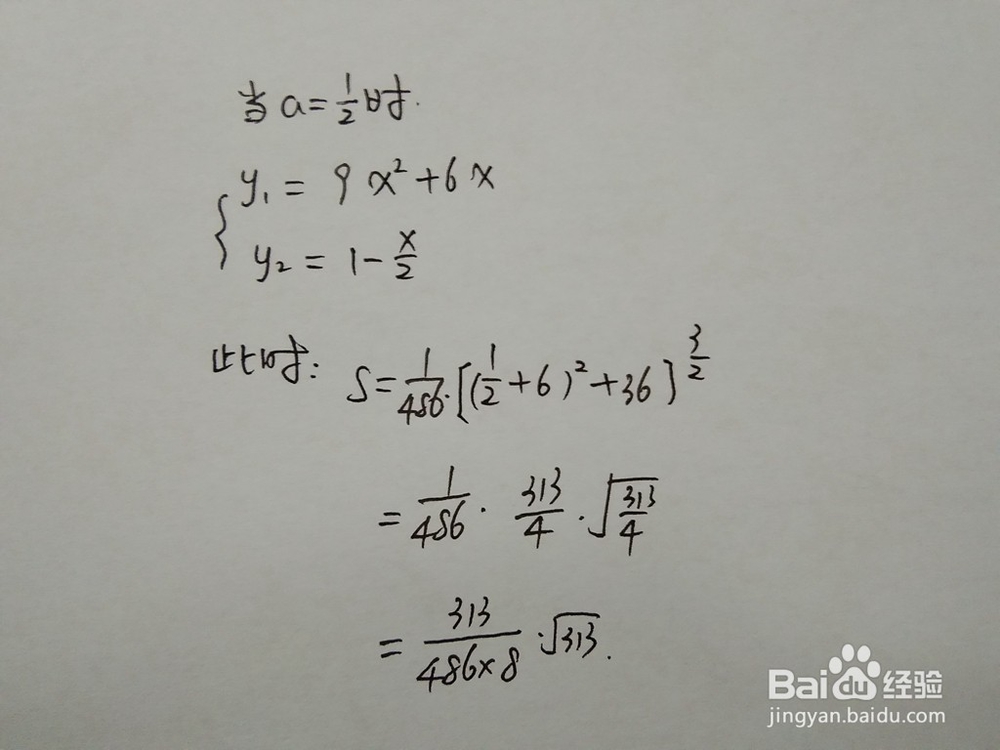 当 a=1/2时.
y₁ = 9x²+6x
y₂ = 1-x/2
此时: S=1/486·[(1/2+6)²+36]^(3/2)
=1/486 · 313/4 · √(313/4)
= 313/(486×8) ·√313.
Baidu经验
jingyan.baidu.com